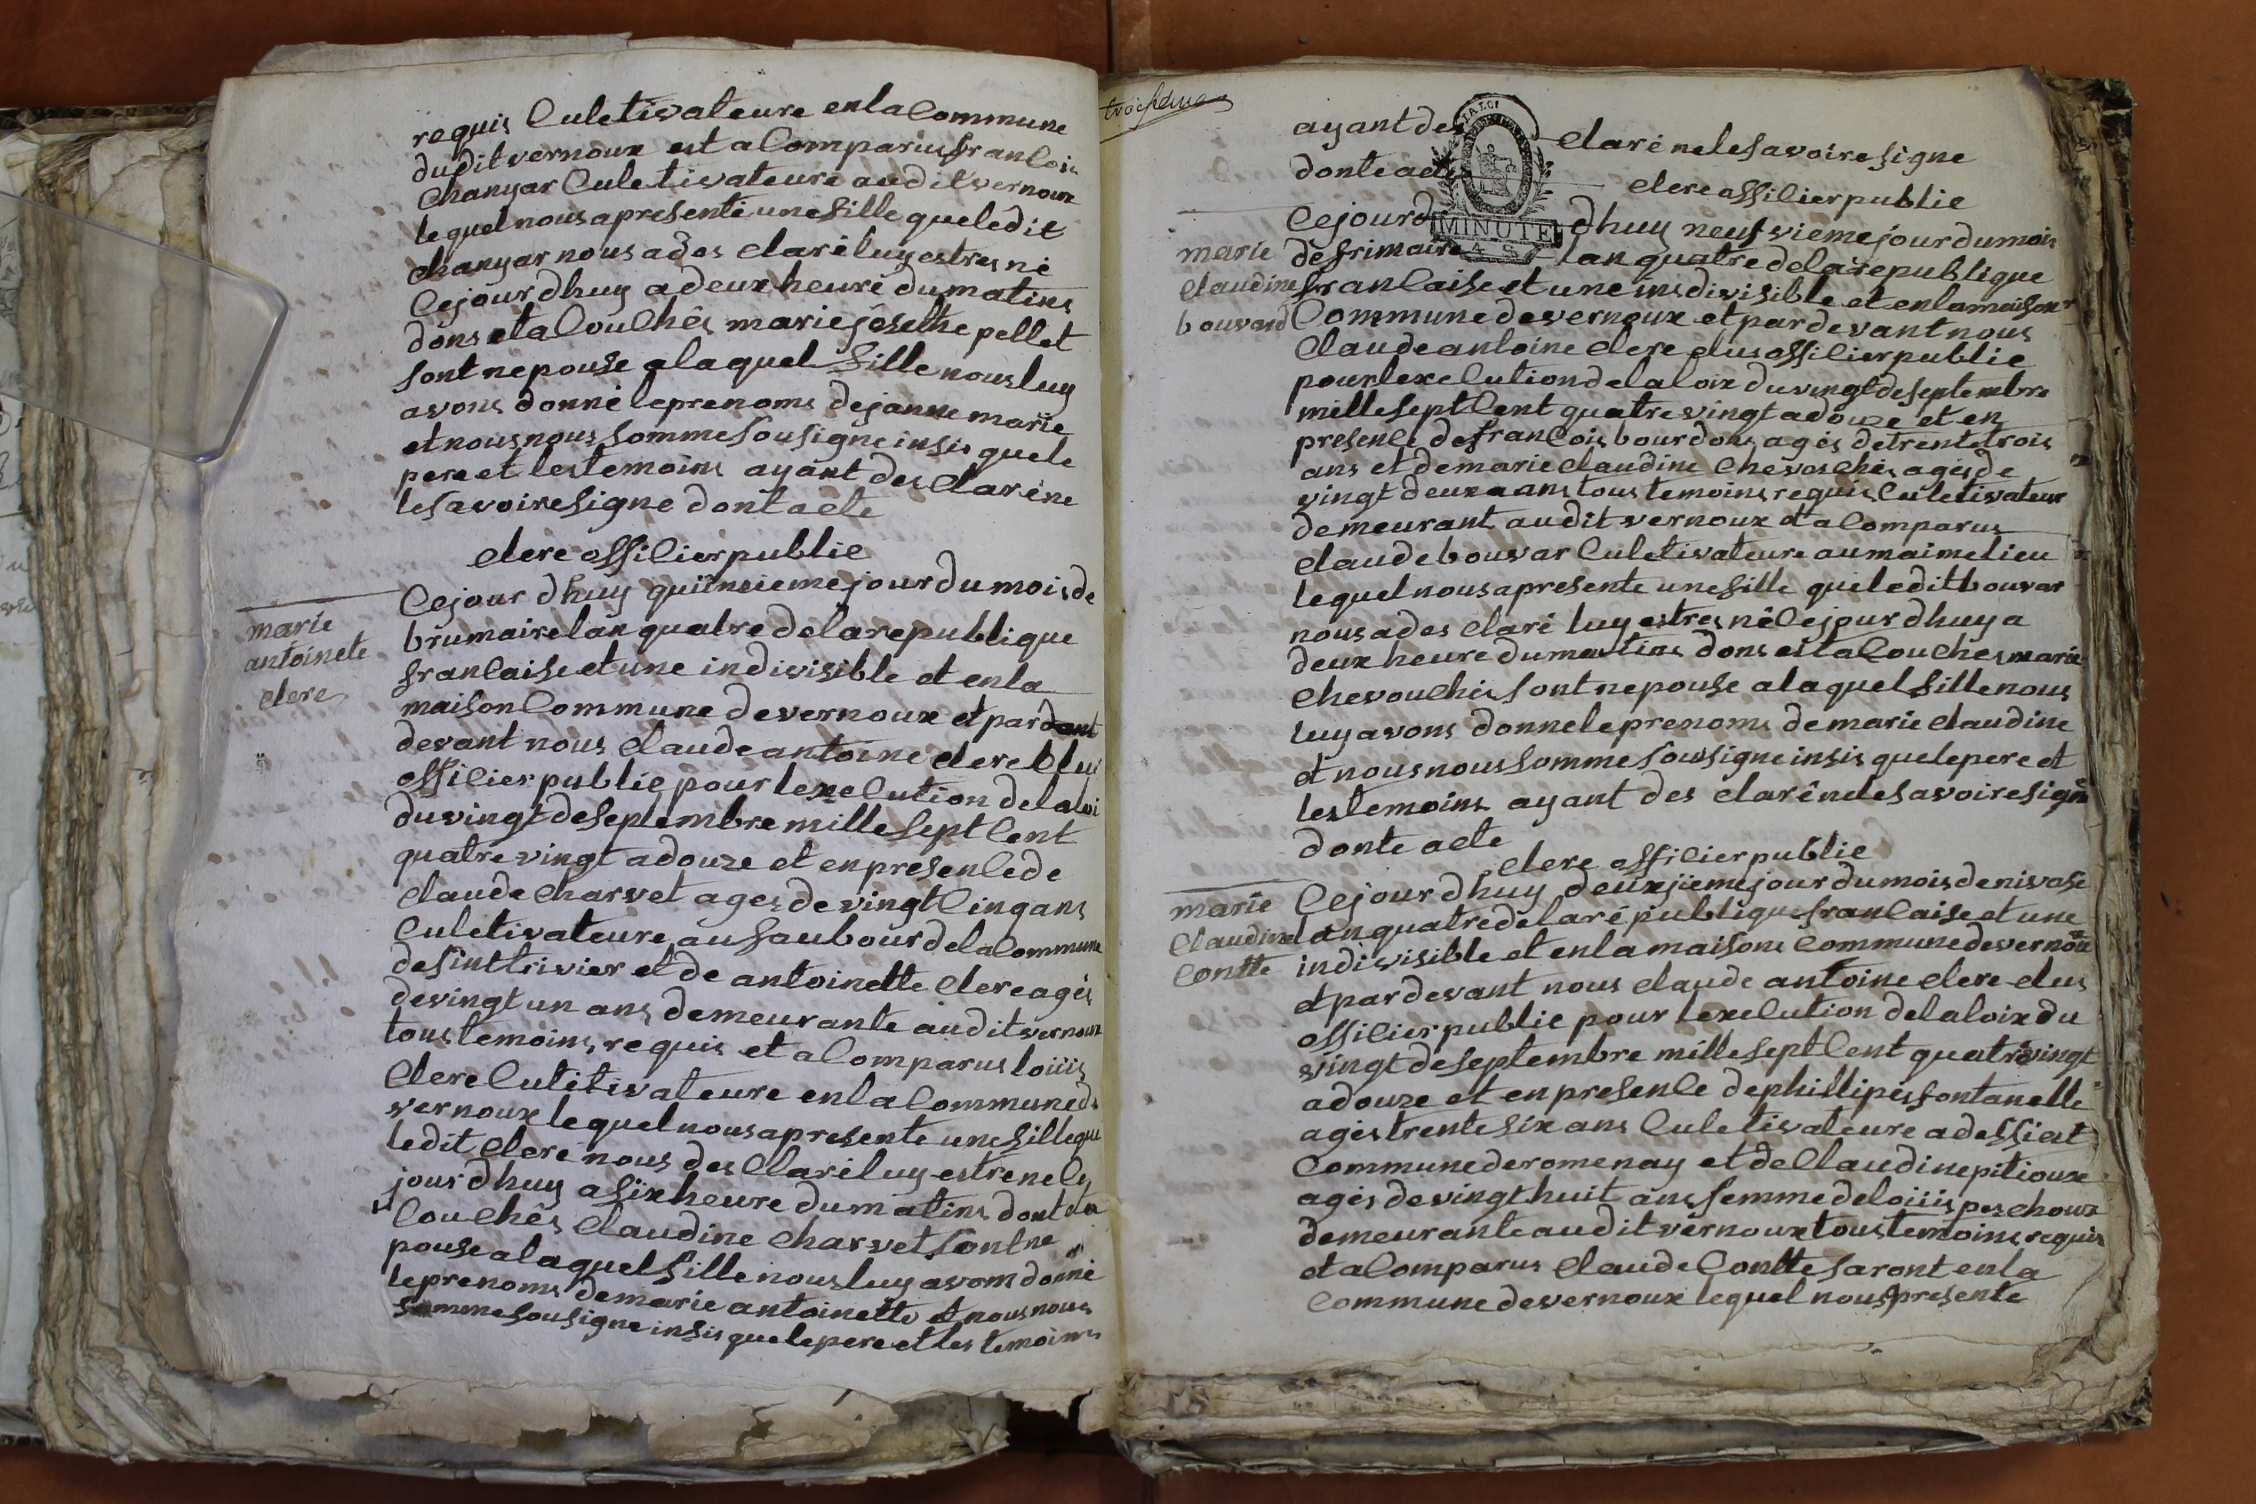 requis Culetivateure en la Commune
dudit vernoux est a Comparus francois
Changar Culetivateure audit vernoux
lequel nous a presenté une fille que ledit
changar nous a des claré luy estres né
Cejour dhuy a deux heure du matins
dons et a Couchés marie josethe pellet
sont nepouse a laquel fille nous luy
avons donné leprenoms de janne marie
et nous nous somme sousigne insis quele
pere et les temoins ayant des claré ne
le savoire signe dont acte
clere officier public
Cejour dhuy quinsieme jour du mois de
brumaire lan quatre de la republique
francaise et une indivisible et en la
maison Commune de vernoux et par
devant nous claude antoine clere Elui
officier public pour lexecution de la loi
du vingt de septembre mille sept Cent
quatre vingt a douze et en presence de
claude Charvet ages de vingt Cinq ans
Culetivateure au faubour de la Commune
de sint trivier et de antoinette clere agés
de vingt un ans demeurante audit vernoux
tous temoins requis et a Comparus loiiis
Clere Cutitivateure en la Commune de
vernoux lequel nous a presente une fille que
ledit clere nous des Claré luy estre ne Ce
jour dhuy a six heure du matins dont et a
Couchés claudine Charvet sont ne
pouse a laquel fille nous luy avons donné
le prenoms de marie antoinette et nous nous
somme sousigne insis que le pere et les temoins
marie
antoinete
clere
ayant des claré ne le savoire signe
donte acte
clere officier public
LA LOI
MINUTE
Cejourd dhuy neufvieme jour du mois
de frimaire lan quatre de la republique
francaise et une indivisible et en la maison
Commune de vernoux et par devant nous
Claude antoine clere elus officier public
pour lexecution de la loix du vingt de septembre
mille sept Cent quatre vingt a douze et en
presence de francois bourdons agés de trente trois
ans et de marie claudine Chevoschés agés de
vingt deux ans tous temoins requis Culetivateur
demeurant audit vernoux et a Comparus
claude bouvar Culetivateure au maime lieu
lequel nous a presente une fille que ledit bouvar
nous a des claré luy estres né Cejour dhuy a
deux heure du matins dons et a Couches marie
Chevouchés sont nepouse a laquel fille nous
luy avons donne le prenoms de marie claudine
et nous nous somme sousigne insis que le pere et
les temoins ayant des claré ne le savoire signe
donte acte
clere officier public
marie
claudine
bouvard
Cejour dhuy deuxjieme jour du mois de nivose
lan quatre de la republique francaise et une
indivisible et en la maisons Commune de vernoux
et par devant nous claude antoine clere elus
officier public pour lexecution de la loix du
vingt de septembre mille sept Cent quatre vingt
a douze et en presence de phillipes fontanelle
agés trente six ans Culetivateure a dessiat
Commune de romenay et de Claudine pitioux
agés de vingt huit ans femme de loiiis peschoux
demeurante audit vernoux tous temoins requis
et a Comparus claude Contte saront en la
Commune de vernoux lequel nous a presente
marie
Claudine
Contte